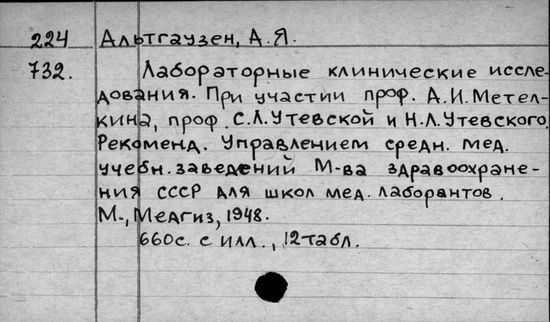 224 Альтгаузен, А.Я.
732. Лабораторные клинические иссле-
дования. При участии проф. А.И.Метел-
кина, проф. С.Л.Утевской и Н.Л.Утевского.
Рекоменд. Управлением средн. мед.
учебн. заведений М-ва здравоохране-
ния СССР для школ мед. лаборантов.
М., Медгиз, 1948.
660с. с илл., 12табл.